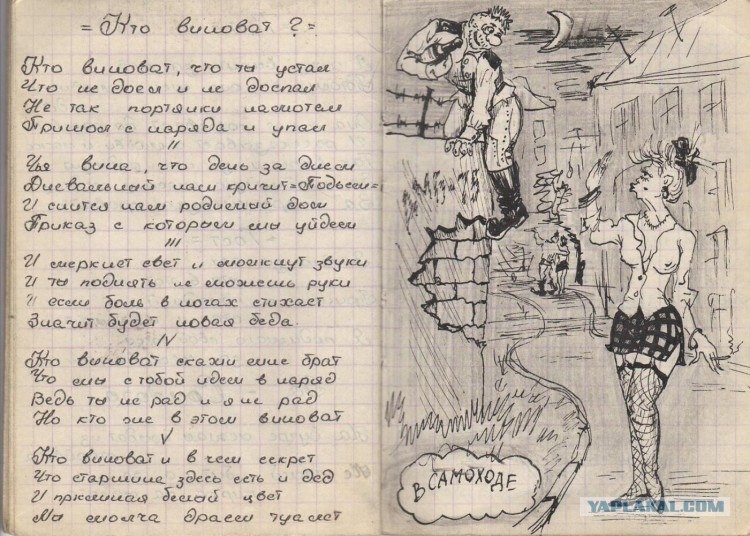 = Кто виноват ? =
Кто виноват, что ты устал
Что не доел и не доспал
Не так портянки намотал
Пришол с наряда и упал
II
Чья вина, что день за днем
Дневальный нам кричит =Подьем=
И снится нам родимый дом
Приказ с которым мы уйдем
III
И меркнет свет и молкнут звуки
И ты поднять не можешь руки
И если боль в ногах стихает
Значит будет новая беда.
IV
Кто виноват скажи мне брат
Что мы с тобой идем в наряд
Ведь ты не рад и я не рад
Но кто же в этом виноват
V
Кто виноват и в чем секрет
Что старшина здесь есть и дед
И принимая белый цвет
Мы молча драем туалет
В САМОХОДЕ
YAPLAKAL.COM